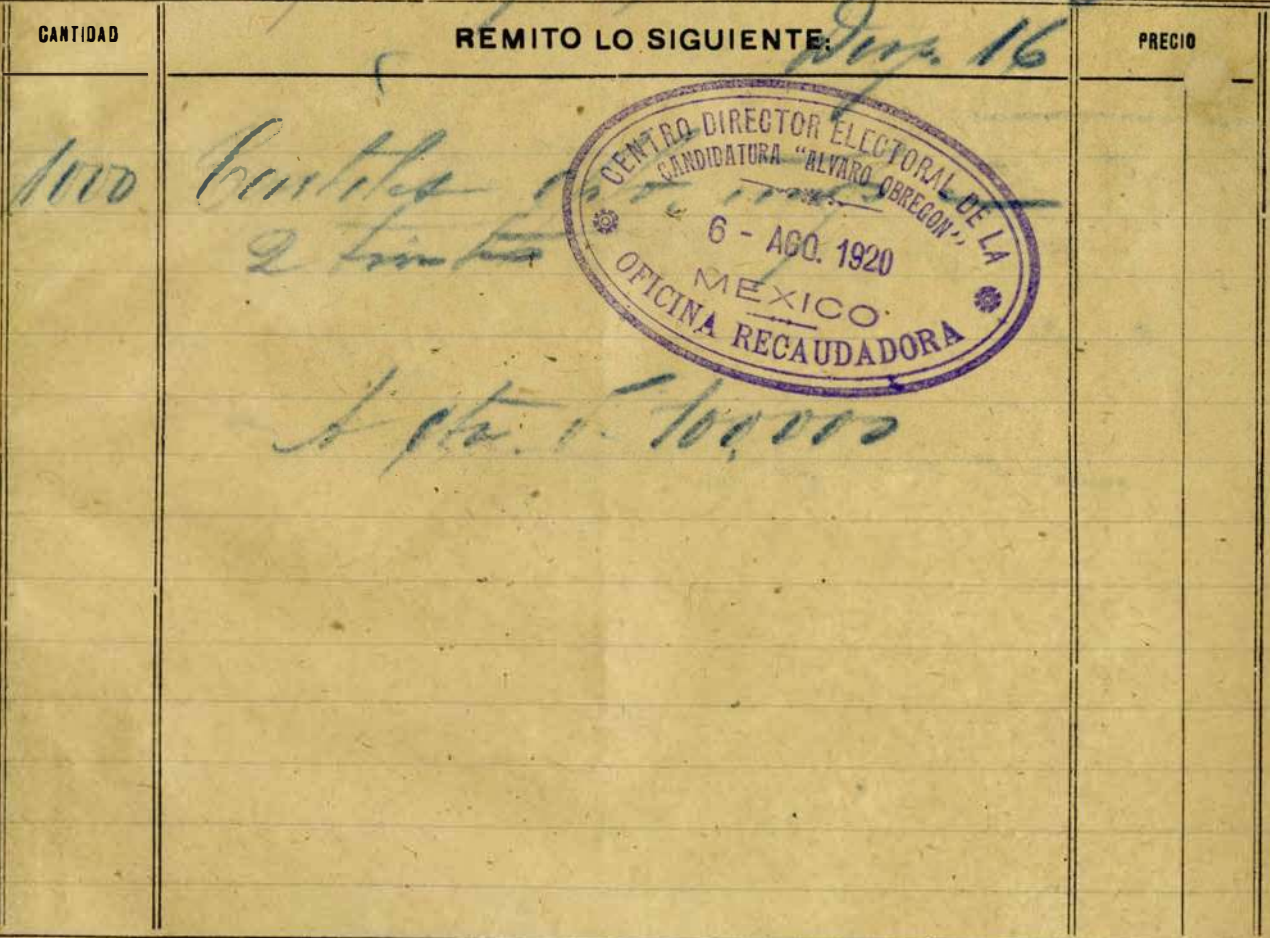 CANTIDAD REMITO LO SIGUIENTE: PRECIO
Desp. 16
1000 Carteles
2 tintas
CENTRO DIRECTOR ELECTORAL DE LA
CANDIDATURA "ALVARO OBREGON"
6 - AGO. 1920
MEXICO
OFICINA RECAUDADORA
A cta. 100,000